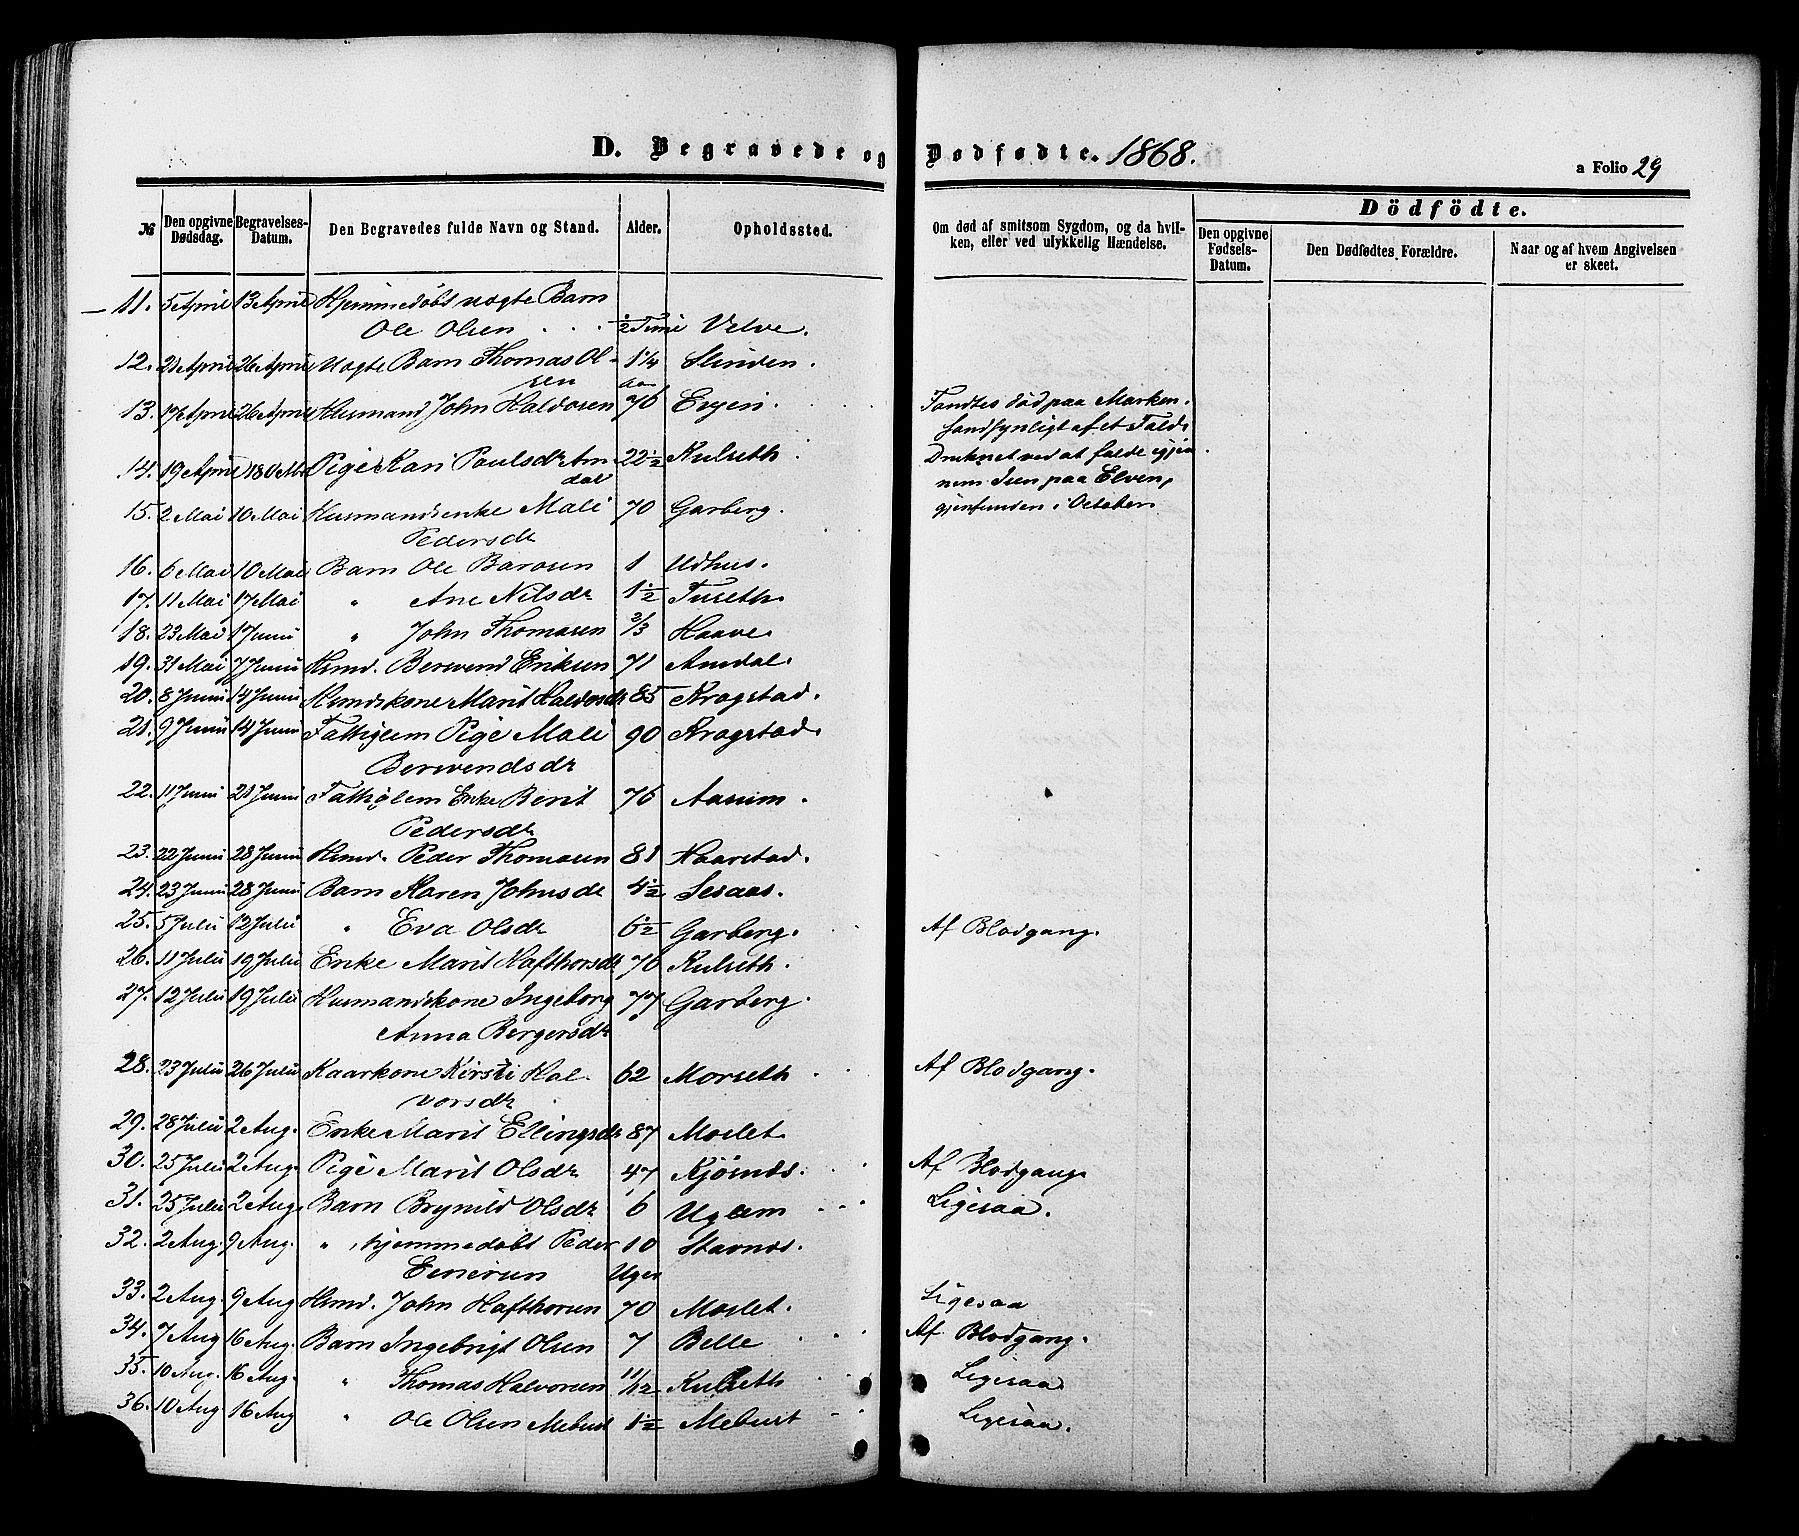 D. Begravede og Dødfødte. 1868.
a Folio 29
№ Den opgivne Dødsdag. Begravelses-Datum. Den Begravedes fulde Navn og Stand. Alder. Opholdssted. Om død af smitsom Sygdom, og da hvilken, eller ved ulykkelig Hændelse. Dödfödte.
Den opgivne Fødsels-Datum. Den Dødfødtes Forældre. Naar og af hvem Angivelsen er skeet.
11. 5 April 13 April Hjemmedøbt uægte Barn
Ole Olsen 1/2 Time Velve.
12. 21 April 26 April Uægte Barn Thomas Ol- 1 1/4 Slinden.
sen Aar
13. 17 April 26 April Husmand John Haldosen 76 Evjen. Fandtes død paa Marken.
Sandsynligt af et Fald.
14. 19 April 18 Pige Kari Paulsdr Am 22 1/2 Kulseth Druknet ved at falde igjen
dal nem Isen paa Elven,
15. 2 Mai 10 Mai Husmandsenke Mali 70 Garberg. gjenfunden i October
Pedersdr
16. 6 Mai 10 Mai Barn Ole Barosen 1 Udhus.
17. 11 Mai 17 Mai " Ane Nilsdr 1 1/2 Tuseth.
18. 23 Mai 1 Juni " John Thomasen 2/3 Haave.
19. 31 Mai 7 Juni Husmd. Berwend Eriksen 71 Amdal.
20. 8 Juni 14 Juni Husmdskone Marit Haldosdr 85 Kragstad.
21. 9 Juni 14 Juni Fattiglem Pige Mali 90 Kragstad.
Berwendsdr
22. 11 Juni 21 Juni Fattiglem Enke Berit 76 Aarum.
Pedersdr
23. 22 Juni 28 Juni Husmd. Peder Thomasen 81 Haarstad.
24. 23 Juni 28 Juni Barn Karen Johnsdr 4 1/2 Sesaas.
25. 5 Juli 12 Juli " Eva Olsdr 6 1/2 Garberg. Af Blodgang.
26. 11 Juli 19 Juli Enke Marit Hafthorsdr 76 Kulseth.
27. 12 Juli 19 Juli Husmandskone Ingeborg 77 Garberg
Anna Bergersdr
28. 23 Juli 26 Juli Kaarkone Kirsti Hal- 62 Morseth Af Blodgang.
vorsdr
29. 28 Juli 2 Aug. Enke Marit Ellingsdr 87 Moslet.
30. 25 Juli 2 Aug. Pige Marit Olsdr 47 Kjøsnæs. Af Blodgang.
31. 25 Juli 2 Aug. Barn Brynild Olsdr 6 Uglem Ligesaa.
32. 2 Aug. 9 Aug. " hjemmedøbt Peder 10 Stavnæs.
Eenersen Uger
33. 2 Aug. 9 Aug Husmd. John Hafthorsen 70 Moslet. Ligesaa
34. 7 Aug 16 Aug. Barn Ingebrigt Olsen 7 Belle Af Blodgang.
35. 10 Aug. 16 Aug. " Thomas Halvorsen 11/12 Kulseth Ligesaa
36. 10 Aug 16 Aug " Ole Olsen Mebust 1 1/2 Mebust Ligesaa.